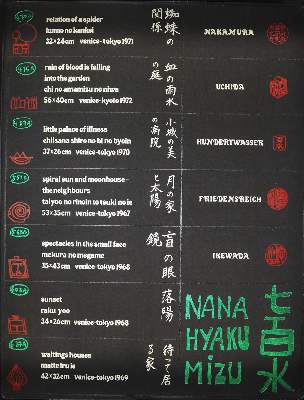 relation of a spider
kumo no kankei
32×24cm venice-tokyo 1971
蜘蛛の
関係
NAKAMURA
rain of blood is falling
into the garden
chi no amamisu no niwa
56×40cm venice-kyoto 1972
血の雨水
の庭
UCHIDA
little palace of illness
chiisana shiro no bi no byoin
37×26cm venice-tokyo 1970
小城の美
の病院
HUNDERTWASSER
spiral sun and moonhouse -
the neighbours
taiyoo no rinain to tsuki no ie
53×35cm venice-tokyo 1967
月の家
と太陽
FRIEDENSREICH
spectacles in the small face
mekura no megame
venice-tokyo 1968
盲の眼
鏡
IKEWADA
sunset
raku yoo
venice-tokyo 1968
落陽
waitings houses
matte iru ie
42×32cm venice-tokyo 1969
待って居
る家
NANA
HYAKU
MIZU
七百水